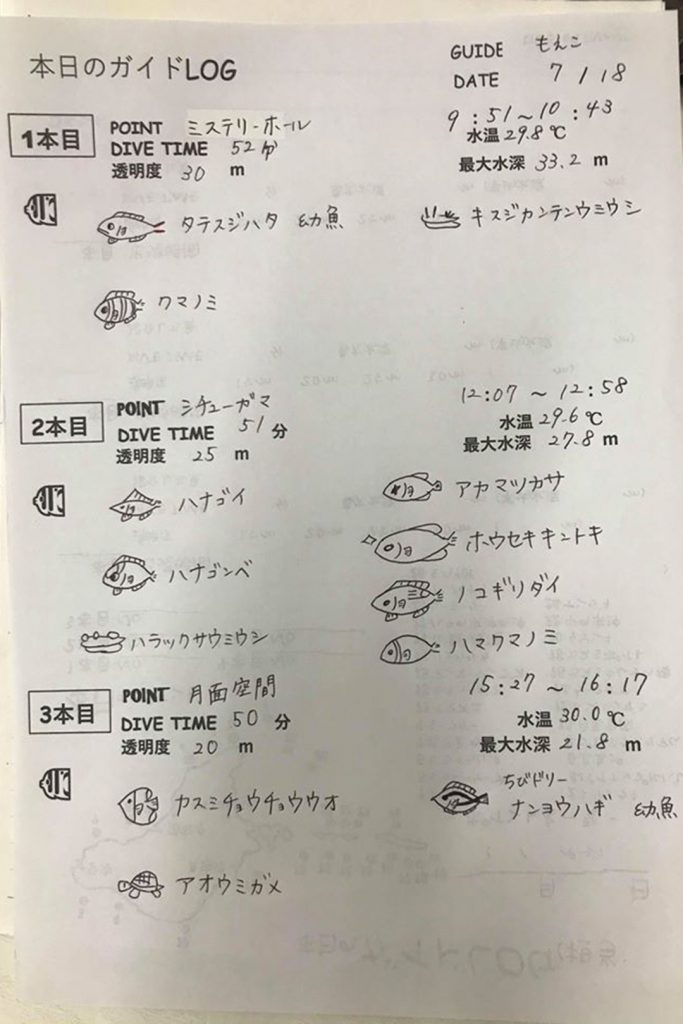 本日のガイドLOG
GUIDE もんこ
DATE 7 / 18
1本目
POINT ミステリーホール
DIVE TIME 52分
透明度 30 m
9:51～10:43
水温 29.8℃
最大水深 33.2 m
タテスジハタ 幼魚
キスジカンテンウミウシ
クマノミ
2本目
POINT シチューガマ
DIVE TIME 51 分
透明度 25 m
12:07 ～ 12:58
水温 29.6℃
最大水深 27.8 m
ハナゴイ
ハナゴンベ
ハラックサウミウシ
アカマツカサ
ホウセキキントキ
ノコギリダイ
ハマクマノミ
3本目
POINT 月面空間
DIVE TIME 50 分
透明度 20 m
15:27 ～ 16:17
水温 30.0℃
最大水深 21.8 m
カスミチョウチョウウオ
ちびドリー
ナンヨウハギ 幼魚
アオウミガメ